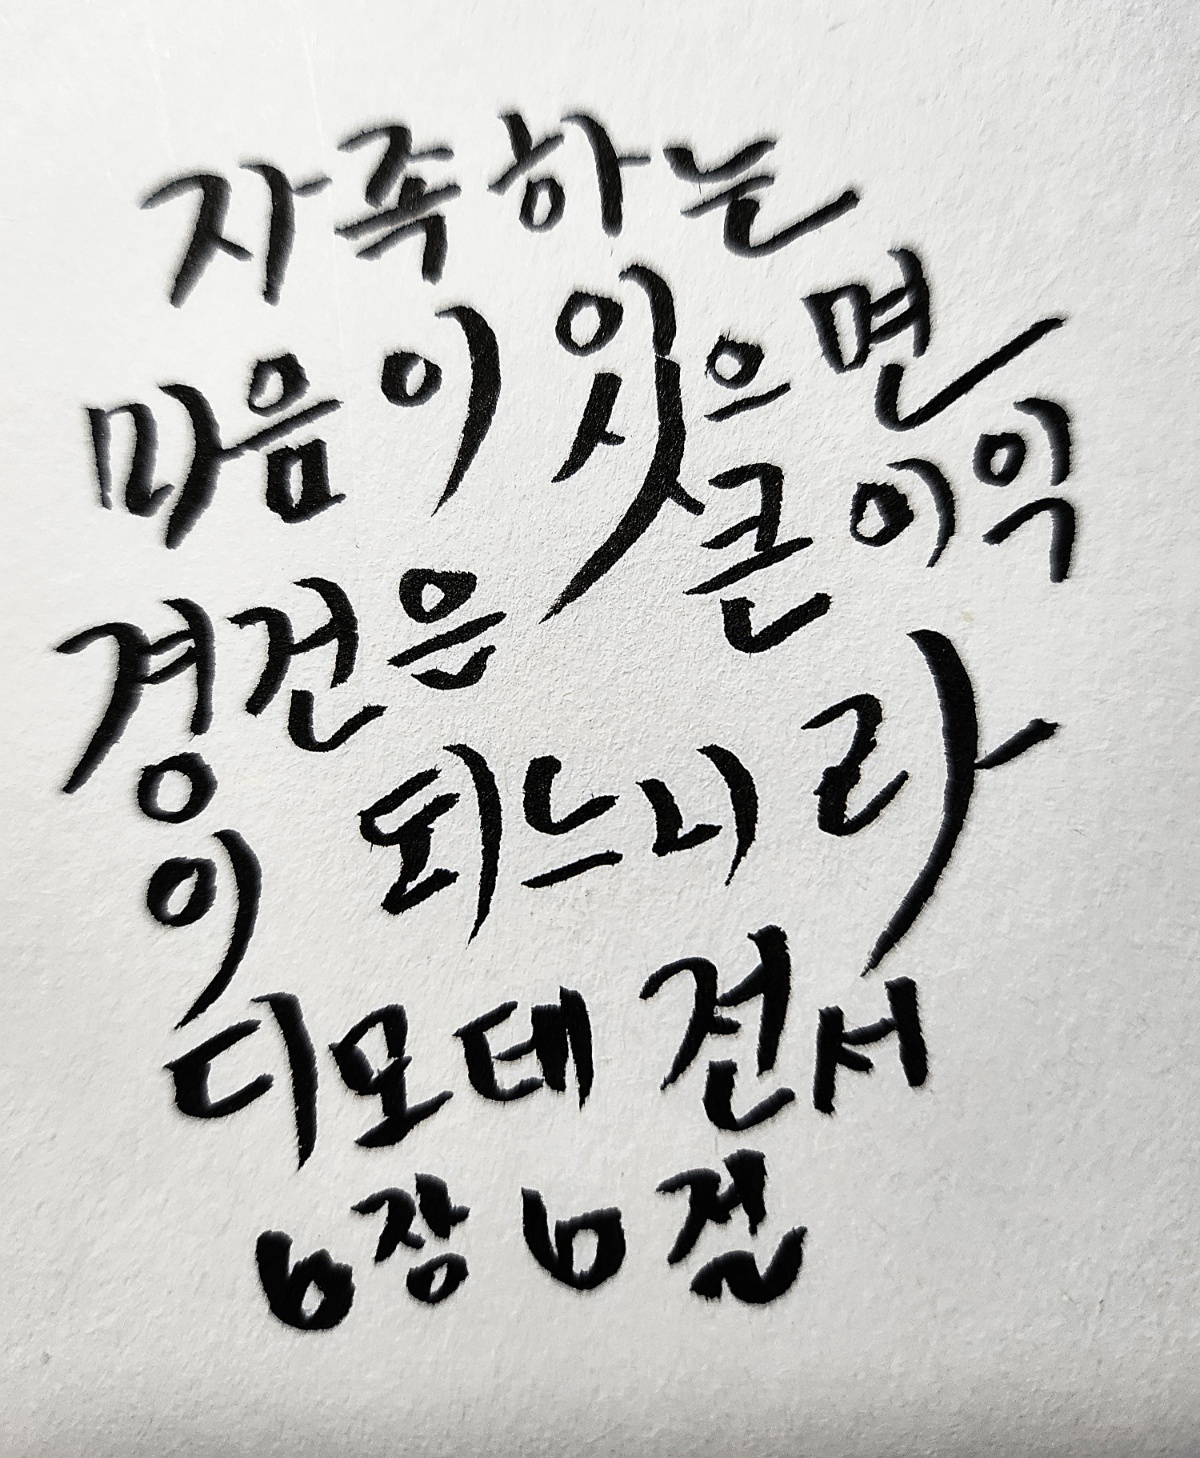 자족하는
마음이 있으면
경건은 큰 이익
이 되느니라
디모데 전서
6장 6절